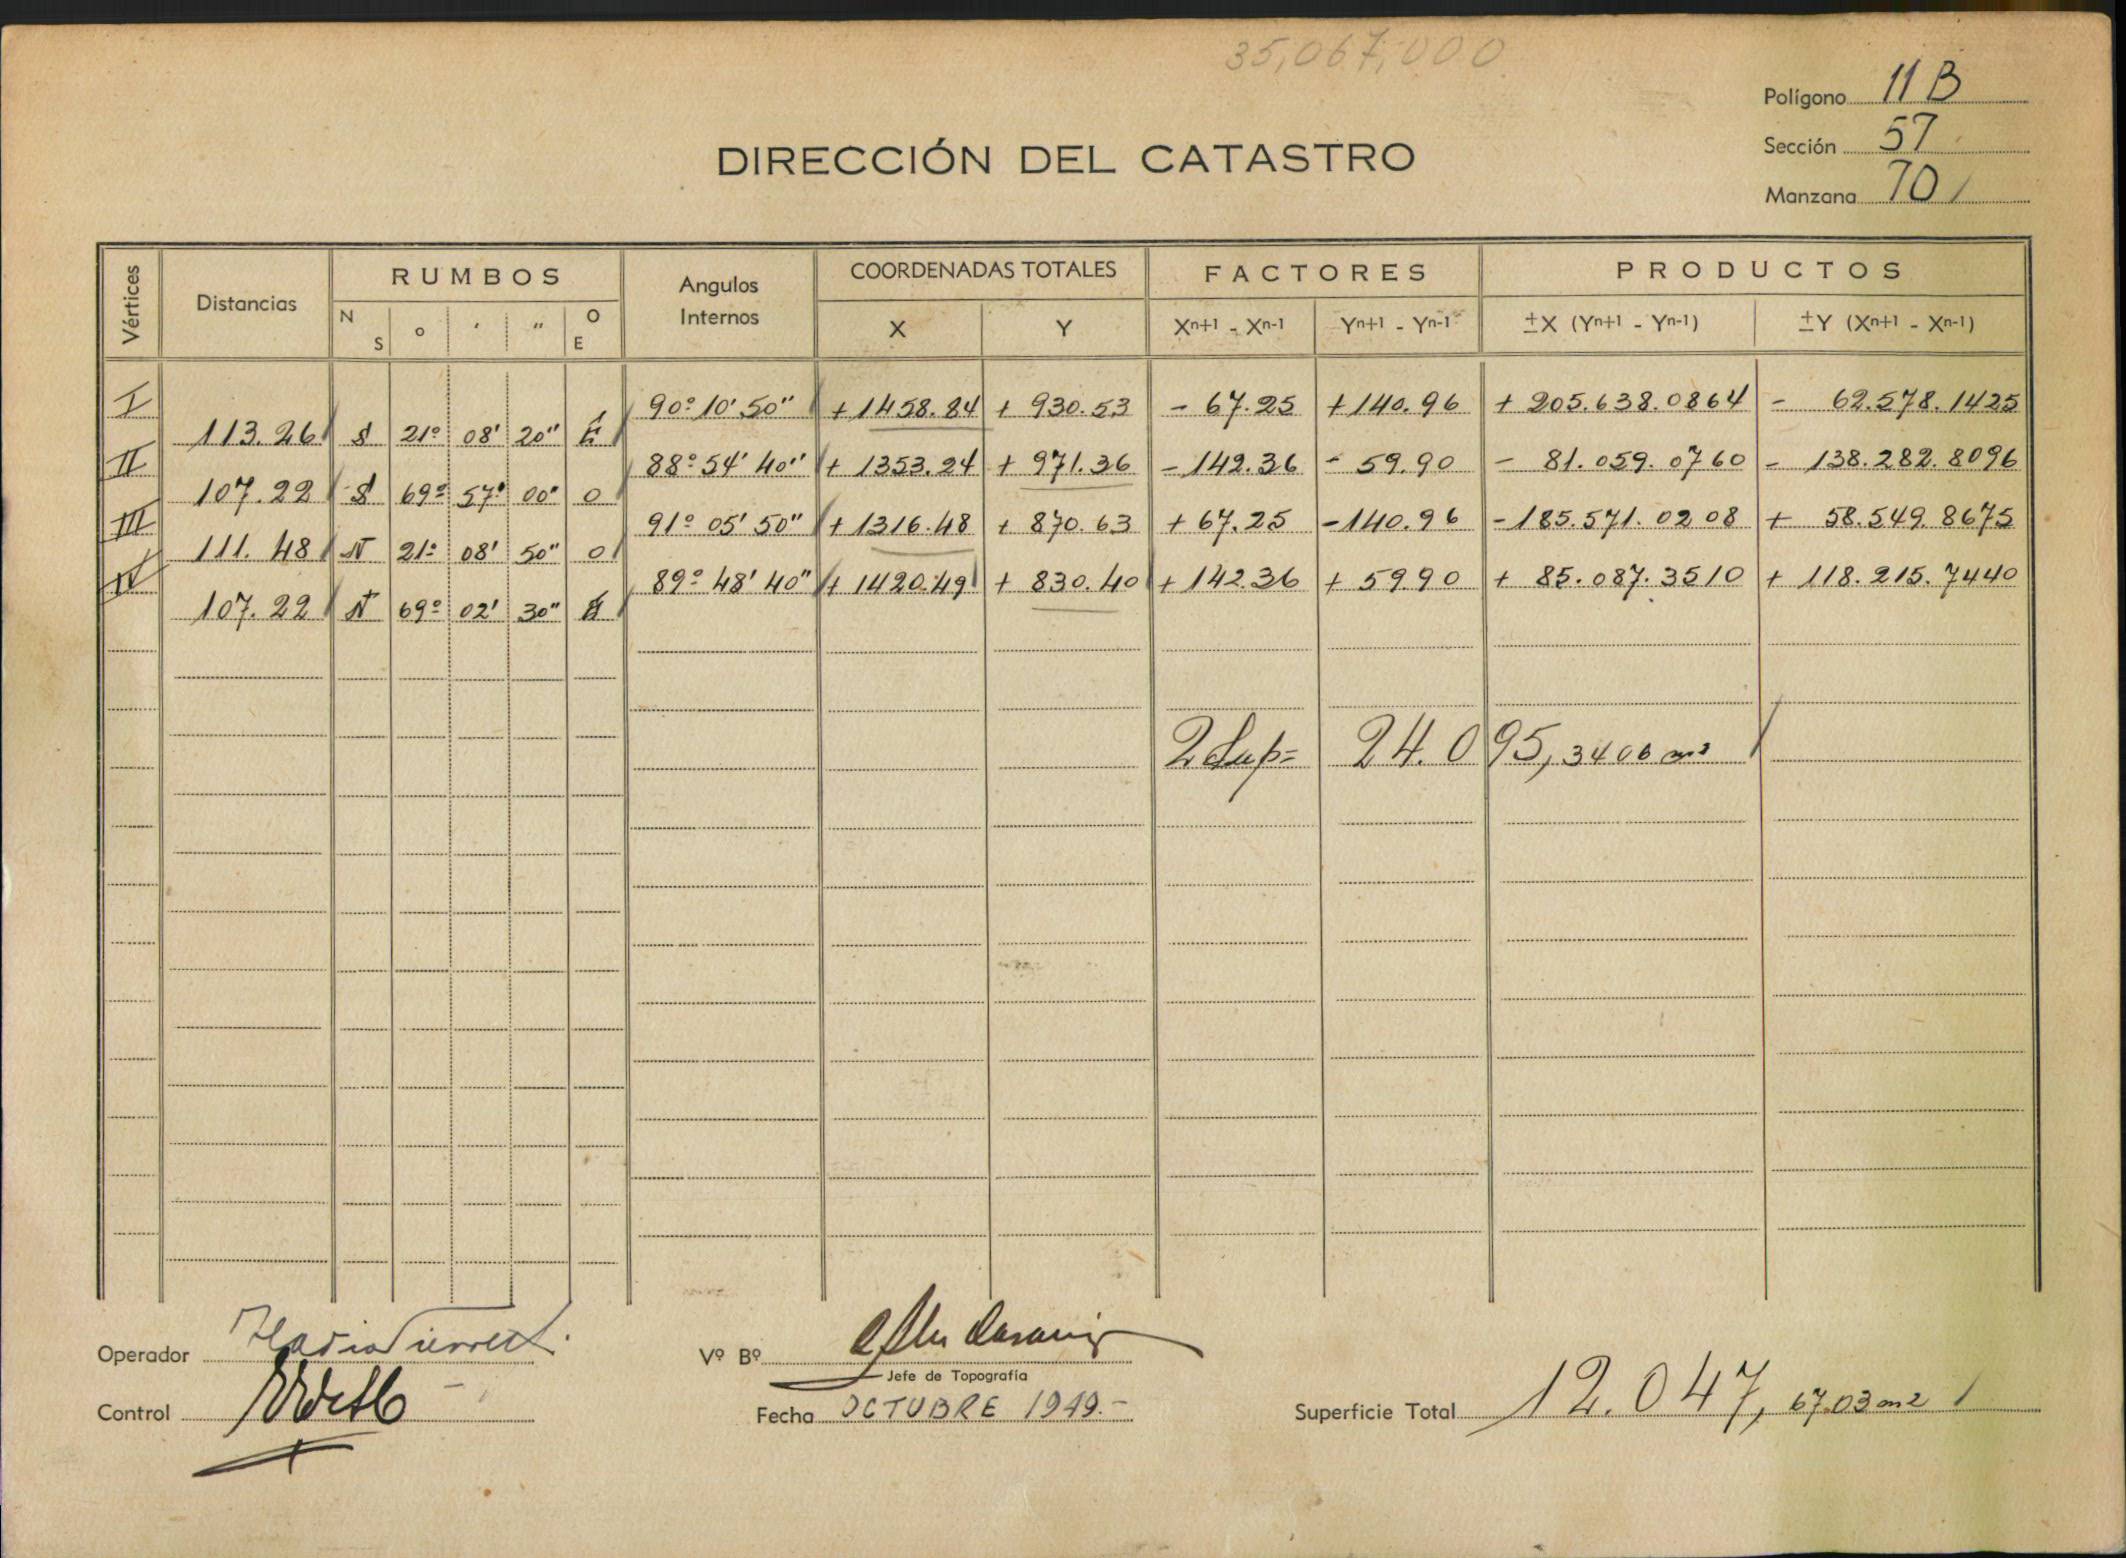 35,067,000
Polígono 11 B
Sección 57
Manzana 70
DIRECCIÓN DEL CATASTRO
Vértices Distancias RUMBOS Angulos Internos COORDENADAS TOTALES FACTORES PRODUCTOS
N S o ' " O E X Y Xn+1 - Xn-1 Yn+1 - Yn-1 ±X (Yn+1 - Yn-1) ±Y (Xn+1 - Xn-1)
I 90º 10' 50" + 1458.84 + 930.53 - 67.25 + 140.96 + 205.638.0864 - 62.578.1425
113.26 S 21º 08' 20" E
II 88º 54' 40" + 1353.24 + 971.36 - 142.36 - 59.90 - 81.059.0760 - 138.282.8096
107.22 S 69º 57' 00" O
III 91º 05' 50" + 1316.48 + 870.63 + 67.25 - 140.96 - 185.571.0208 + 58.549.8675
111.48 N 21º 08' 50" O
IV 89º 48' 40" + 1420.49 + 830.40 + 142.36 + 59.90 + 85.087.3510 + 118.215.7440
107.22 N 69º 02' 30" E
2 Sup= 24.095,3406 m²
Operador
Vº Bº
Jefe de Topografía
Control
Fecha OCTUBRE 1949.-
Superficie Total 12.047,67.03 m2